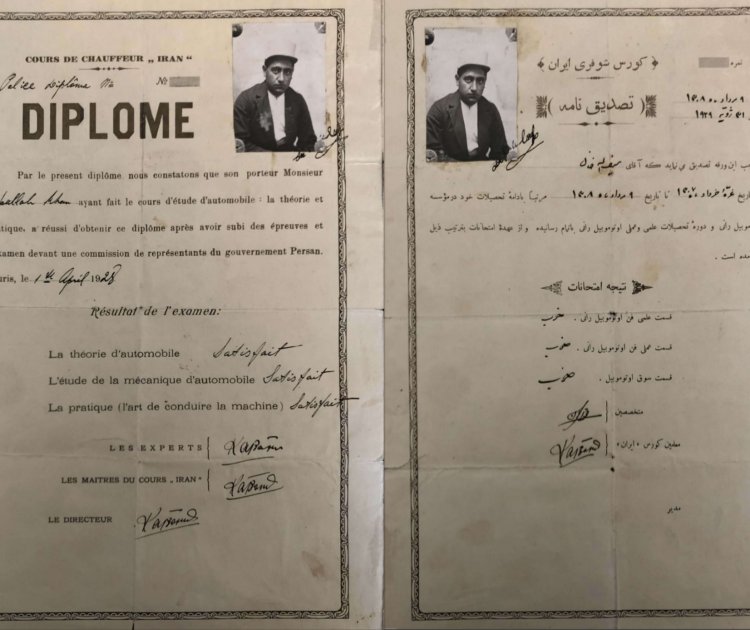 COURS DE CHAUFFEUR „ IRAN “
Police Diplôme No
№
DIPLOME
Par le present diplôme nous constatons que son porteur Monsieur
ayant fait le cours d'étude d'automobile : la théorie et
tique, a réussi d'obtenir ce diplôme après avoir subi des épreuves et
xamen devant une commission de représentants du gouvernement Persan.
uris, le 1 April 1928
Résultat de l'examen:
La théorie d'automobile Satisfait
L'étude de la mécanique d'automobile Satisfait
La pratique (l'art de conduire la machine) Satisfait
LES EXPERTS
LES MAITRES DU COURS „ IRAN “
LE DIRECTEUR
کورس شوفری ایران
نمره
تصدیق نامه
۹ مرداد ۱۳۰۸
۱۹۲۹
ب این ورقه تصدیق می نماید که آقای
تا تاریخ ۹ مرداد ۱۳۰۸ مرتباً بادامهٔ تحصیلات خود در مؤسسه
موبیل رانی و دورهٔ تحصیلات علمی و عملی اوتوموبیل رانی باتمام رسانیده و از عهدهٔ امتحانات بترتیب ذیل
مده است .
نتیجه امتحانات
قسمت علمی فن اوتوموبیل رانی .
قسمت عملی فن اوتوموبیل رانی .
قسمت سوق اوتوموبیل .
متخصصین
معلمین کورس «ایران»
مدیر